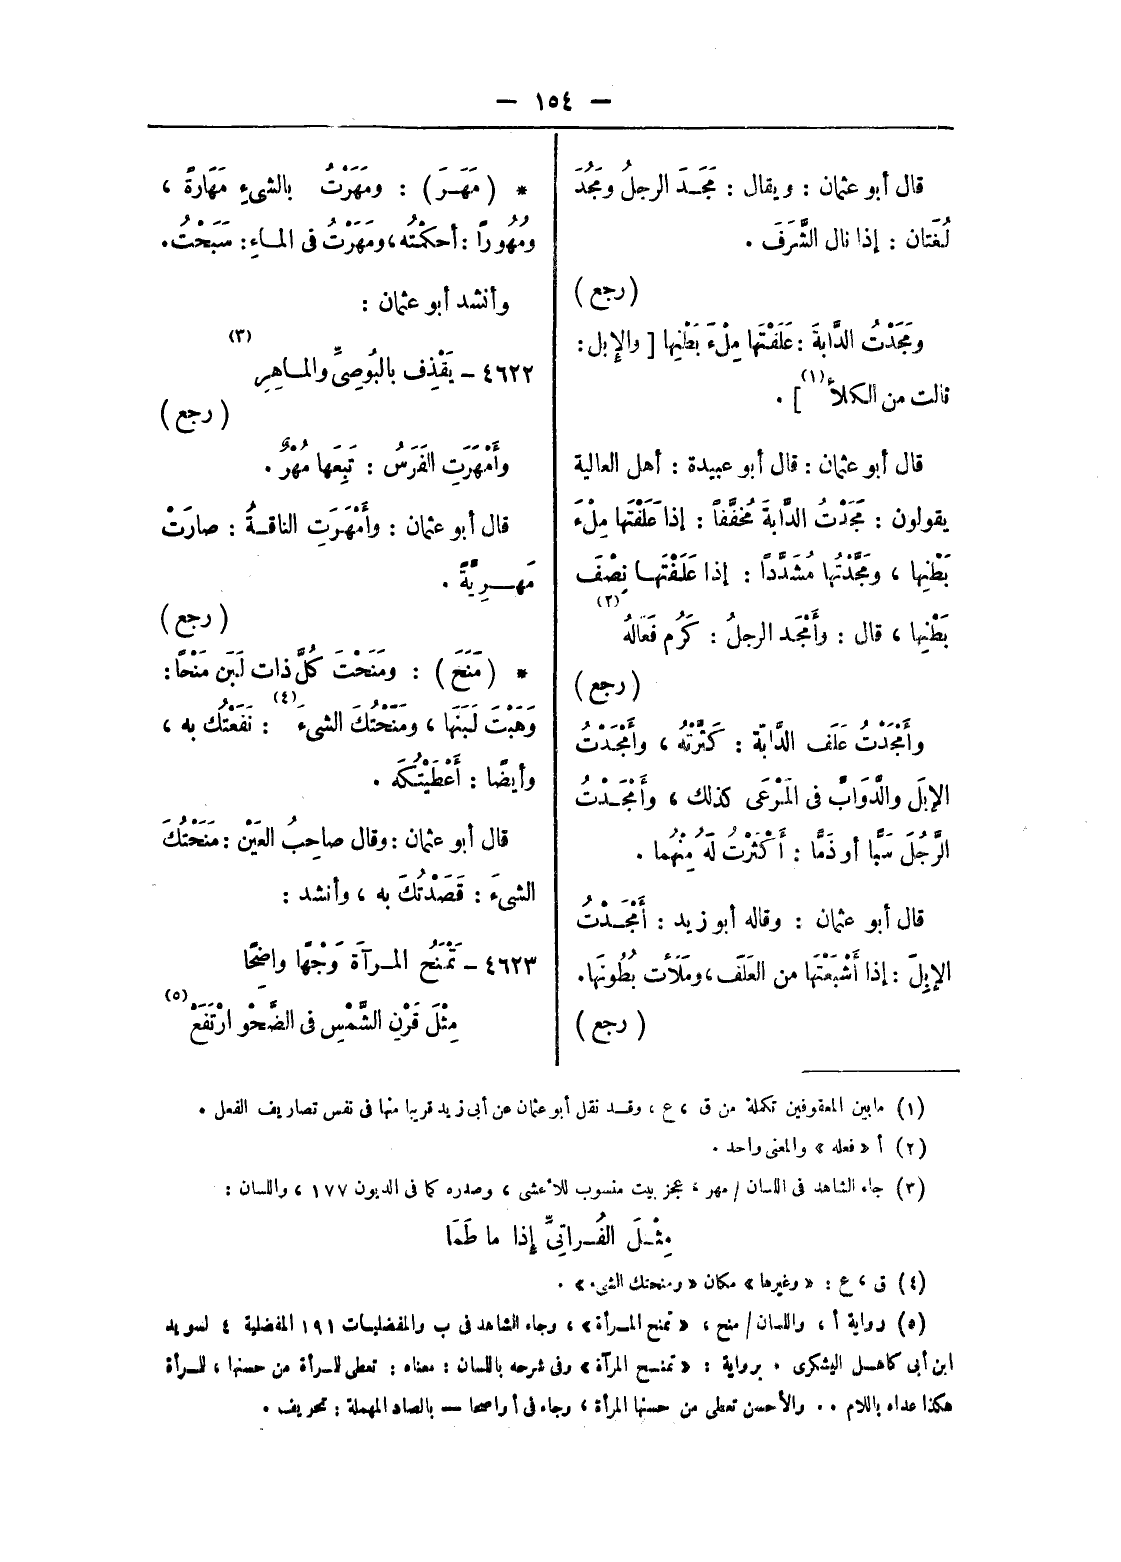 — ١٥٤ —
قال أبو عثمان : ويقال : مَجَـدَ الرجلُ ومَجُدَ
لُغَتان : إذا نال الشَّرَفَ .
( رجع )
ومَجَدْتُ الدَّابةَ : عَلَفْتَها مِلْءَ بَطْنِها [ والإبل :
نالت من الكلأ (١) ] .
قال أبو عثمان : قال أبو عبيدة : أهل العالية
يقولون : مَجَدْتُ الدَّابةَ مُخَفَّفاً : إذا عَلَفْتَها مِلْءَ
بَطْنِها ، ومَجَّدْتُها مُشَدَّدًا : إذا عَلَفْتَهـا نِصْفَ
بَطْنِها ، قال : وأَمْجَد الرجلُ : كَرُم فَعَالهُ (٢)
( رجع )
وأَمْجَدْتُ عَلَف الدَّابّة : كَثَّرْتُه ، وأَمْجَدْتُ
الإبلَ والدَّوَابَّ فى المَرْعَى كذلك ، وأَمْجَـدْتُ
الرَّجُلَ سَبًّا أو ذَمًّا : أَكْثَرْتُ لَهُ مِنْهُما .
قال أبو عثمان : وقاله أبو زيد : أَمْجَـدْتُ
الإبِلَ : إذا أَشْبَعْتَها من العَلَف ، ومَلَأْت بُطُونَها.
( رجع )
* ( مَهَـرَ ) : ومَهَرْتُ بالشىءِ مَهَارةً ،
ومُهُورًا : أحكمْتُه ، ومَهَرْتُ فى المـاءِ : سَبَحْتُ.
وأنشد أبو عثمان :
٤٦٢٢ – يَقْذِف بالبُوصِىِّ والمـاهِرِ (٣)
( رجع )
وأَمْهَرَتِ الفَرَسُ : تَبِعَها مُهْرٌ .
قال أبو عثمان : وأَمْهَرَتِ الناقـةُ : صارَتْ
مَهـــرِيَّةً .
( رجع )
* ( مَنَحَ ) : ومَنَحْتَ كُلَّ ذات لَبَن مَنْحًا :
وَهَبْتَ لَبَنَها ، ومَنَحْتُكَ الشىءَ (٤) : نَفَعْتُك به ،
وأيضًا : أَعْطَيْتُـكَه .
قال أبو عثمان : وقال صاحِبُ العَيْن : مَنَحْتُكَ
الشىءَ : قَصَدْتُكَ به ، وأنشد :
٤٦٢٣ – تَمْنَحُ المـرآةَ وَجْهًا واضِحًا
مِثْلَ قَرْنِ الشَّمْسِ فى الضَّحْوِ ارْتَفَعْ (٥)
(١) مابين المعقوفين تكملة من ق ، ع ، وقـد نقل أبو عثمان عن أبى زيد قريبا منها فى نفس تصاريف الفعل .
(٢) أ « فعله » والمعنى واحد .
(٣) جاء الشاهد فى اللسان / مهر ، عجز بيت منسوب للأعشى ، وصدره كما فى الديون ١٧٧ ، واللسان :
مِثْـلَ الفُـراتِىِّ إذا ما طَمَا
(٤) ق ، ع : « وغيرها » مكان « ومنحتك الشىء » .
(٥) رواية أ ، واللسان / منح ، « تمنح المـرأة » ، وجاء الشاهد فى ب والمفضليـات ١٩١ المفضلية ٤ لسويد
ابن أبى كاهـل اليشكرى . برواية : « تمنـح المرآة » وفى شرحه باللسان : معناه : تعطى للـرأة من حسنها ، للـرأة
هكذا عداه باللام .. والأحسن تعطى من حسنها المرأة ، وجاء فى أ راصحا — بالصاد المهملة : تحريف .